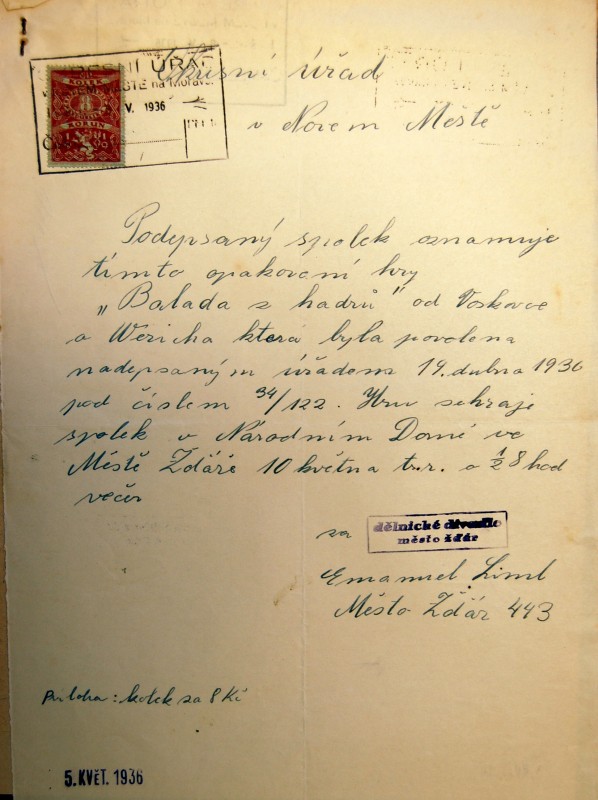 Okresní úřad
v Novém Městě
V. 1936
KOLEK
8
KORUN
Podepsaný spolek oznamuje
tímto opakovaní hry
„Balada z hadrů" od Voskovce
a Wericha která byla povolena
nadepsaným úřadem 19. dubna 1936
pod číslem 34/122. Hru sehraje
spolek v Národním Domě ve
Městě Žďáře 10 května t.r. o ½8 hod
večer
za
dělnické divadlo
město žďár
Emanuel
Město Žďár 443
Příloha: kolek za 8 Kč
5. KVĚT. 1936